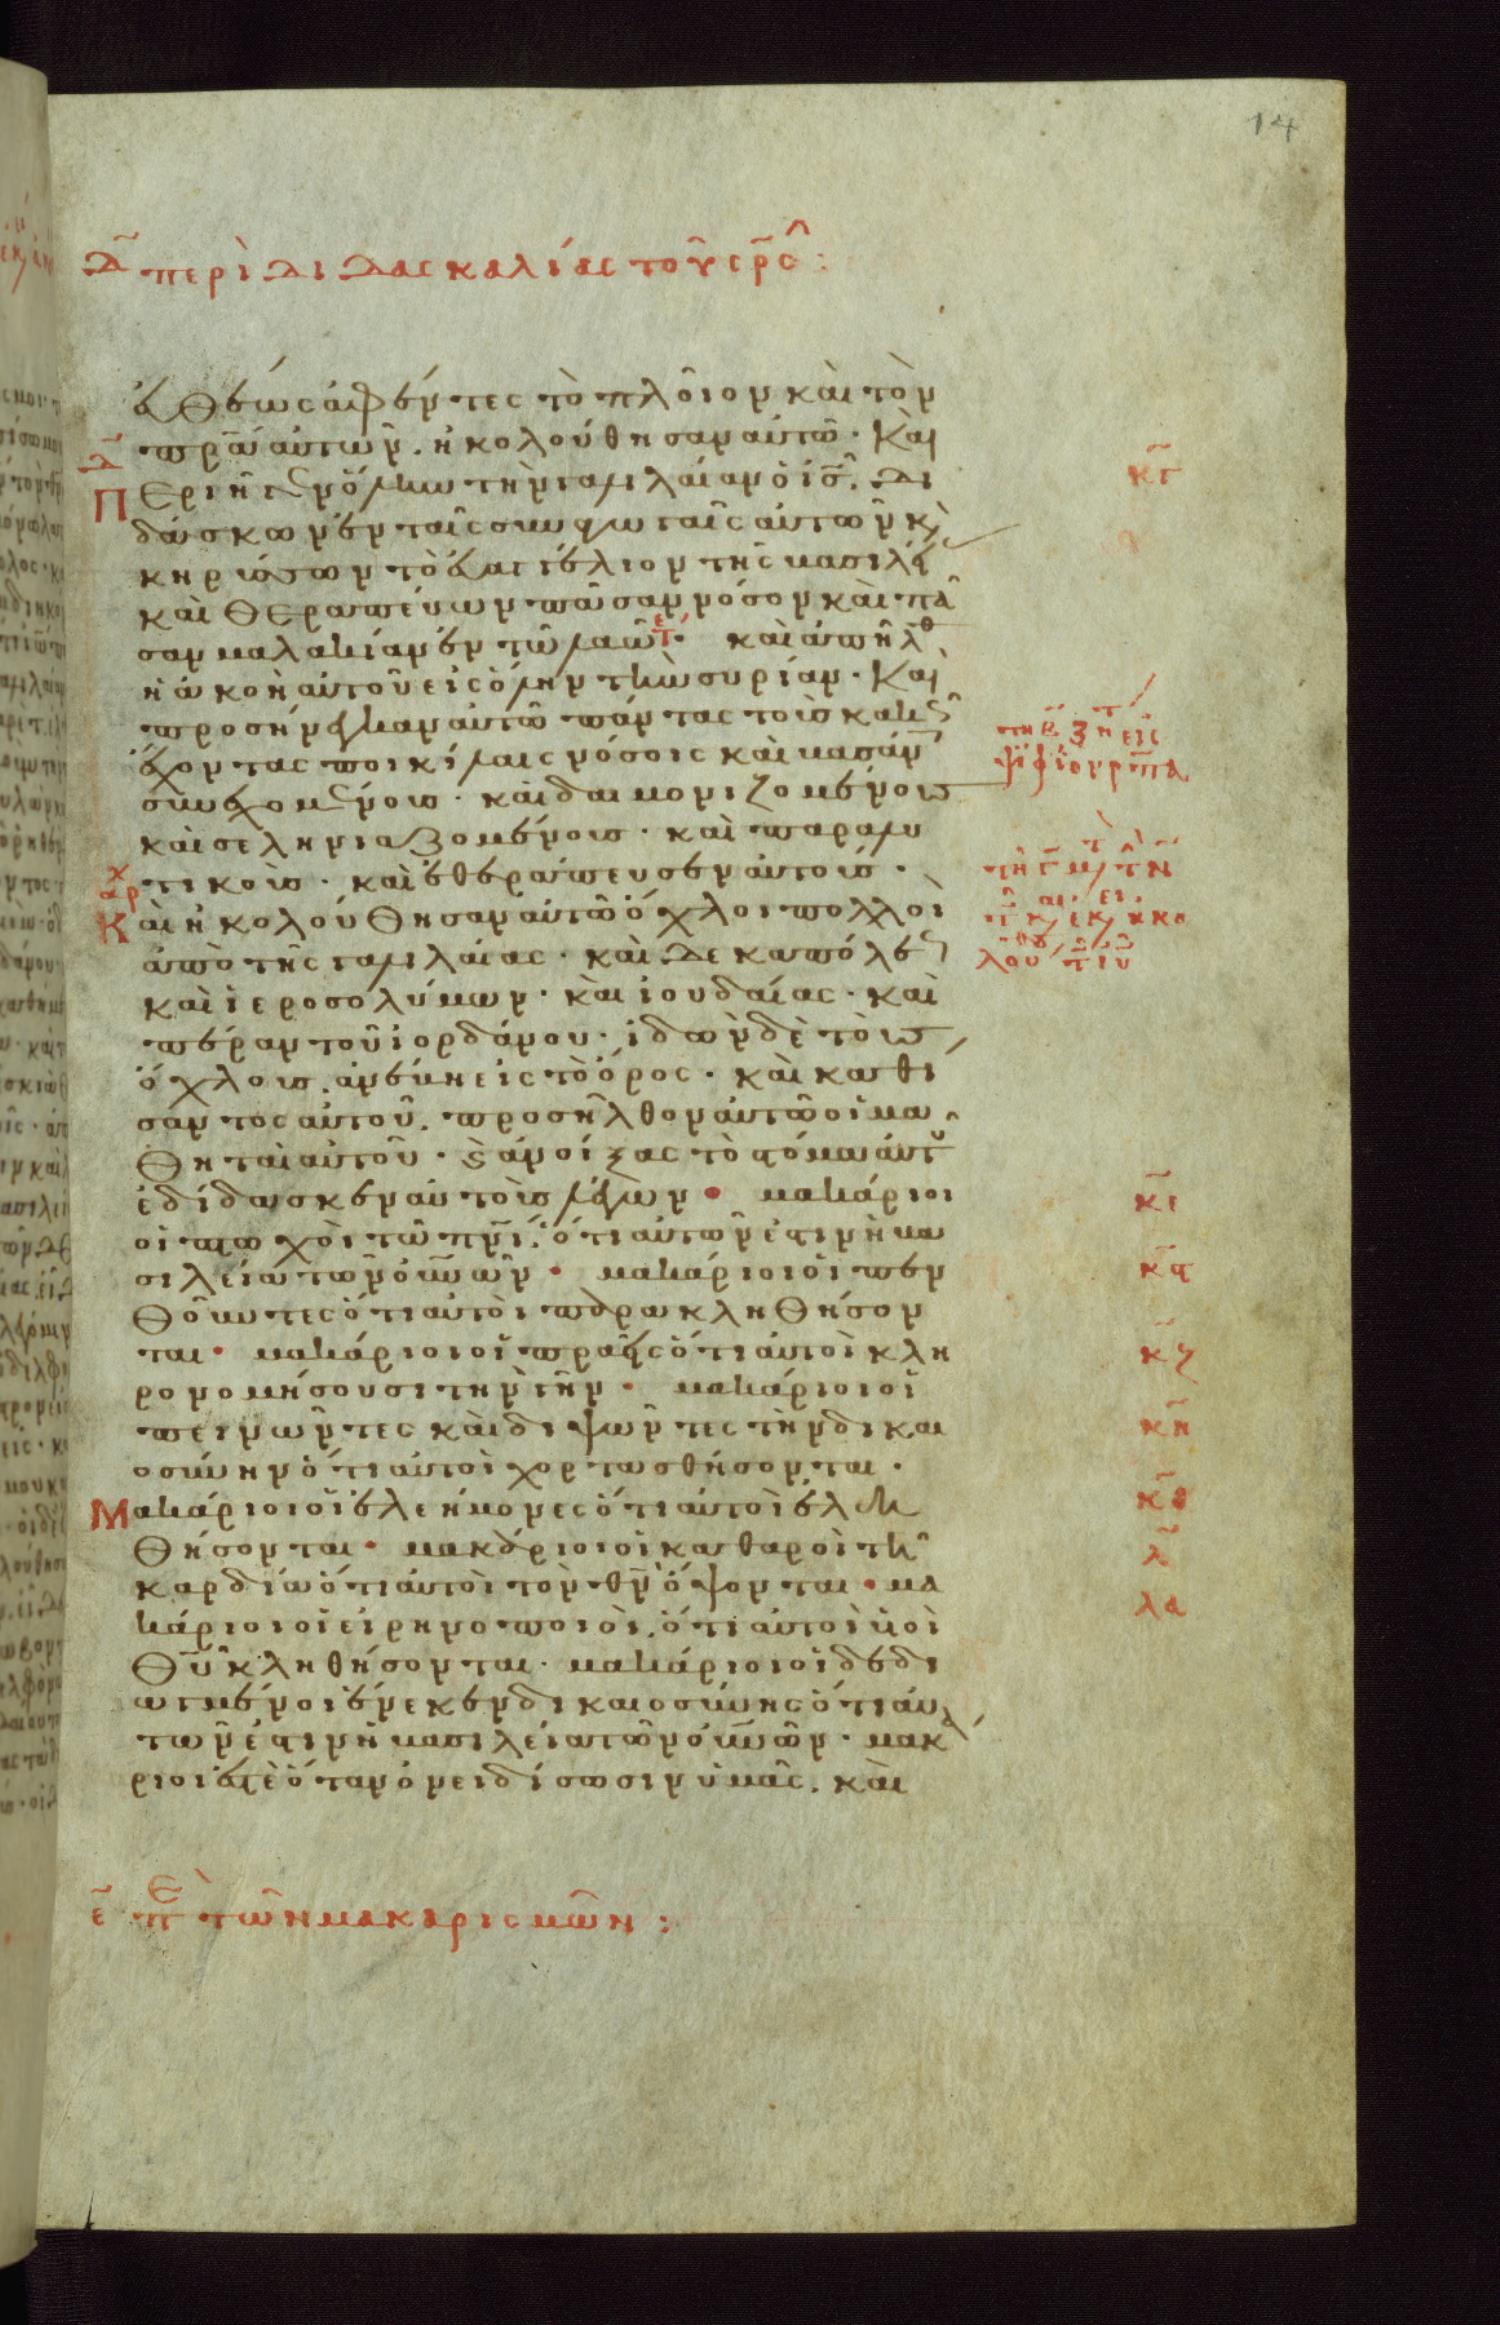 14
δ̄ περὶ διδασκαλίας τοῦ σρ̄ς :
εὐθέως ἀφέντες τὸ πλοῖον καὶ τὸν
πρ̅α αὐτῶν. ἠκολούθησαν αὐτῶ· Καὶ
Περιῆγεν ὅλην τὴν γαλιλαίαν ὁ ις̅. δι
δάσκων ἐν ταῖς συναγωγαῖς αὐτῶν κ
κηρύσσων τὸ εὐαγγέλιον τῆς βασιλεί
καὶ θεραπεύων πᾶσαν νόσον καὶ πᾶ
σαν μαλακίαν ἐν τῶ λαῶ· καὶ ἀπῆλθ
ἡ ἀκοὴ αὐτοῦ εἰς ὅλην τὴν συρίαν· Καὶ
προσήνεγκαν αὐτῶ πάντας τοὺς κακῶς
ἔχοντας ποικίλαις νόσοις καὶ βασάν
συνεχομένους· καὶ δαιμονιζομένους
καὶ σεληνιαζομένους· καὶ παραλυ
τικούς· καὶ ἐθεράπευσεν αὐτούς·
Καὶ ἠκολούθησαν αὐτῶ ὄχλοι πολλοὶ
ἀπὸ τῆς γαλιλαίας· καὶ δεκαπόλεως
καὶ ἱεροσολύμων· καὶ ἰουδαίας· καὶ
πέραν τοῦ ἰορδάνου· ἰδὼν δὲ τοὺς
ὄχλους. ἀνέβη εἰς τὸ ὄρος· καὶ καθί
σαντος αὐτοῦ. προσῆλθον αὐτῶ οἱ μα
θηταὶ αὐτοῦ· ϗ ἀνοίξας τὸ στόμα αὐτοῦ
ἐδίδασκεν αὐτοὺς λέγων· μακάριοι
οἱ πτωχοὶ τῶ πν̅ι. ὅτι αὐτῶν ἐστιν ἡ βα
σιλεία τῶν οὐν̅ῶν· μακάριοι οἱ πεν
θοῦντες ὅτι αὐτοὶ παρακληθήσον
ται· μακάριοι οἱ πραεῖς ὅτι αὐτοὶ κλη
ρονομήσουσι τὴν γῆν· μακάριοι οἱ
πεινῶντες καὶ διψῶντες τὴν δικαι
οσύνην ὅτι αὐτοὶ χορτασθήσονται·
Μακάριοι οἱ ἐλεήμονες ὅτι αὐτοὶ ἐλεη
θήσονται· μακάριοι οἱ καθαροὶ τῆ
καρδία ὅτι αὐτοὶ τὸν θν̅ ὄψονται· μα
κάριοι οἱ εἰρηνοποιοὶ. ὅτι αὐτοὶ υἱοὶ
θυ̅ κληθήσονται· μακάριοι οἱ δεδι
ωγμένοι ἕνεκεν δικαιοσύνης ὅτι αὐ
τῶν ἐστιν ἡ βασιλεία τῶν οὐν̅ῶν· μακά
ριοι ἐστὲ ὅταν ὀνειδίσωσιν ὑμᾶς. καὶ
ε̄ πε τῶν μακαρισμῶν :
δ̄
κγ̄
κε̄
κϛ̄
κζ̄
κη̄
κθ̄
λ̄
λα